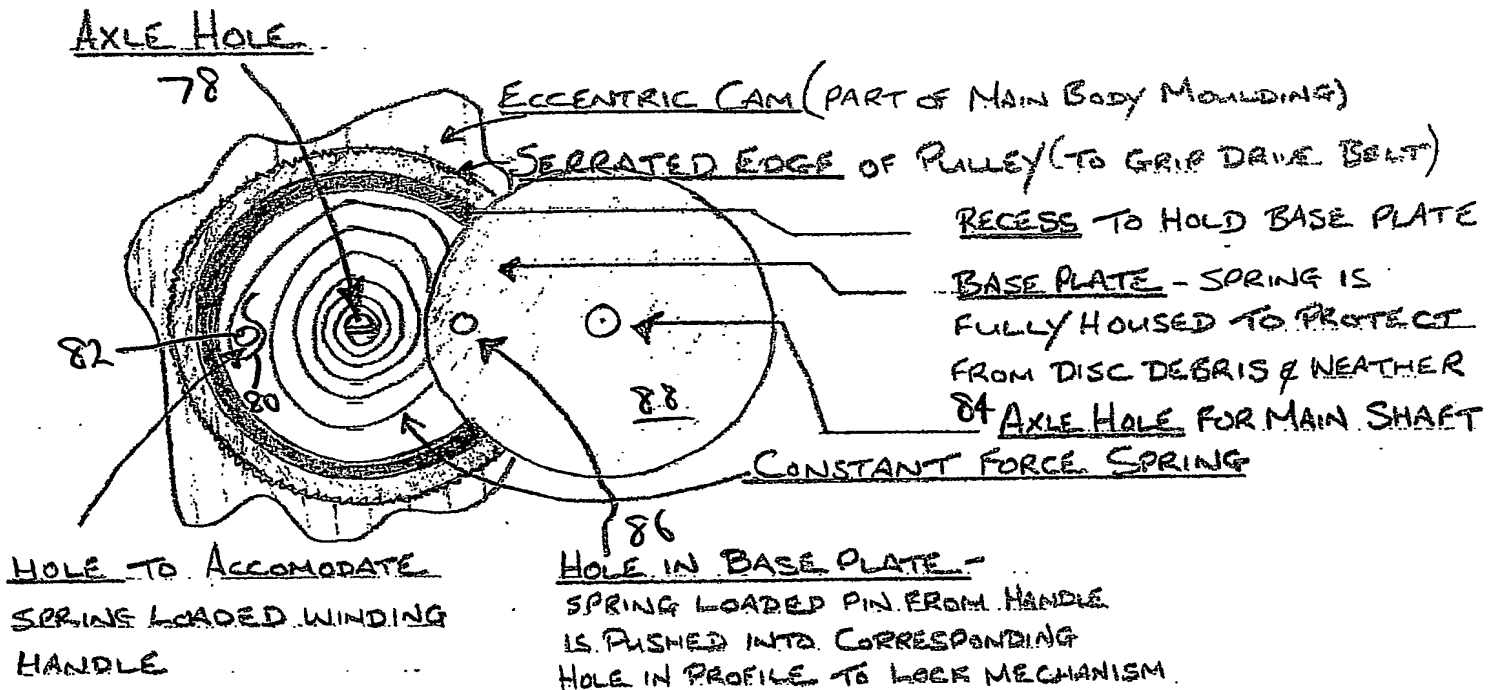 AXLE HOLE
78
ECCENTRIC CAM (PART OF MAIN BODY MOULDING)
SERRATED EDGE OF PULLEY (TO GRIP DRIVE BELT)
RECESS TO HOLD BASE PLATE
BASE PLATE - SPRING IS
FULLY HOUSED TO PROTECT
FROM DISC DEBRIS & WEATHER
82
80
88
84 AXLE HOLE FOR MAIN SHAFT
CONSTANT FORCE SPRING
86
HOLE TO ACCOMODATE
SPRING LOADED WINDING
HANDLE
HOLE IN BASE PLATE -
SPRING LOADED PIN FROM HANDLE
IS PUSHED INTO CORRESPONDING
HOLE IN PROFILE TO LOCK MECHANISM.